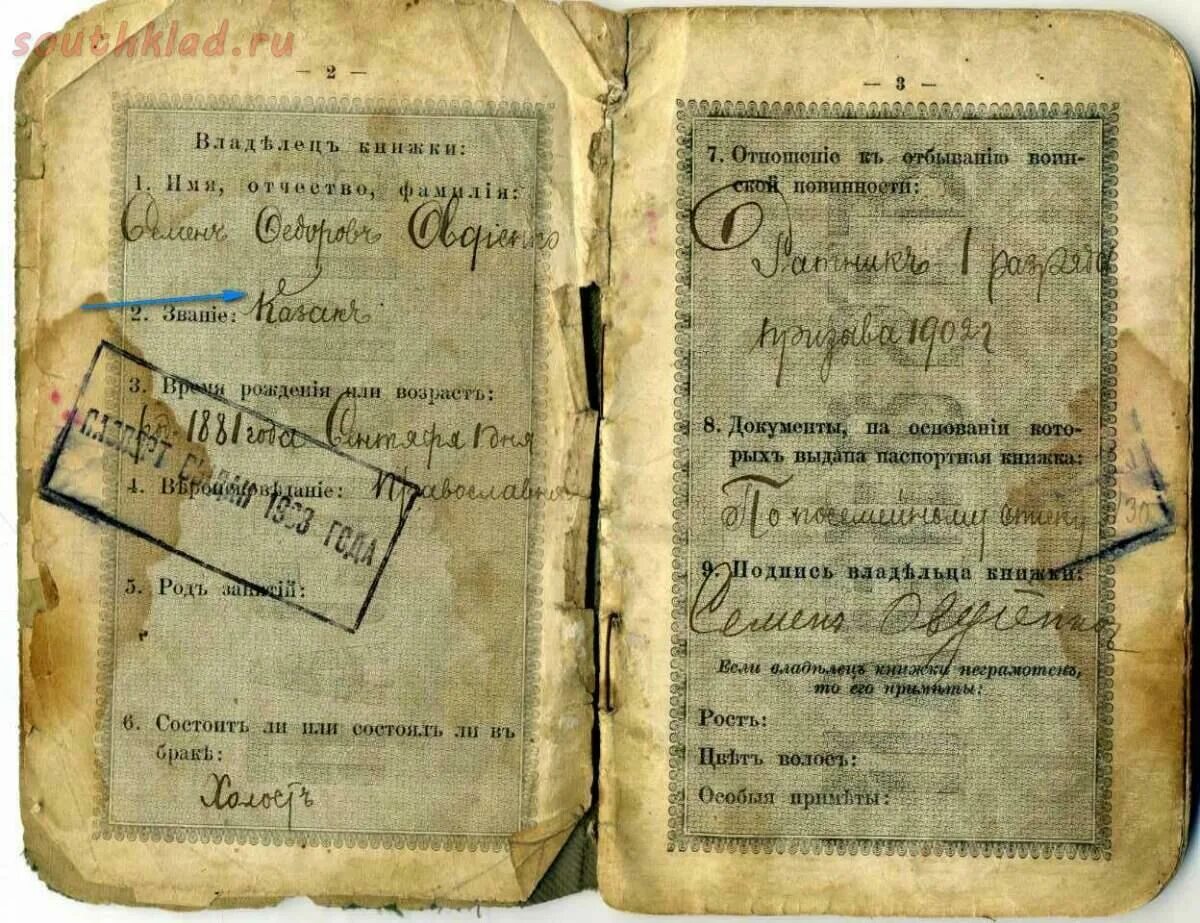 southklad.ru
— 2 —
Владѣлецъ книжки:
1. Имя, отчество, фамилія:
Семенъ Федоровъ Овдіенко
2. Званіе: Казакъ
3. Время рожденія или возрастъ:
1881 года Сентября 1 дня
4. Вѣроисповѣданіе: Православн
ПАСПОРТ 1933 ГОДА
5. Родъ занятій:
6. Состоитъ ли или состоялъ ли въ
бракѣ:
Холостъ
— 3 —
7. Отношеніе къ отбыванію воин-
ской повинности:
Ратникъ 1 разряда
призыва 1902 г
8. Документы, на основаніи кото-
рыхъ выдана паспортная книжка:
По посемейному списку
30
9. Подпись владѣльца книжки:
Семенъ Овдіенко
Если владѣлецъ книжки неграмотенъ,
то его примѣты:
Ростъ:
Цвѣтъ волосъ:
Особыя примѣты: